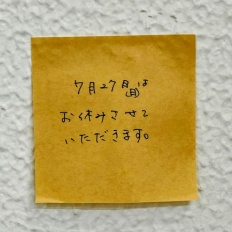 7月27(月)は
お休みさせて
いただきます。